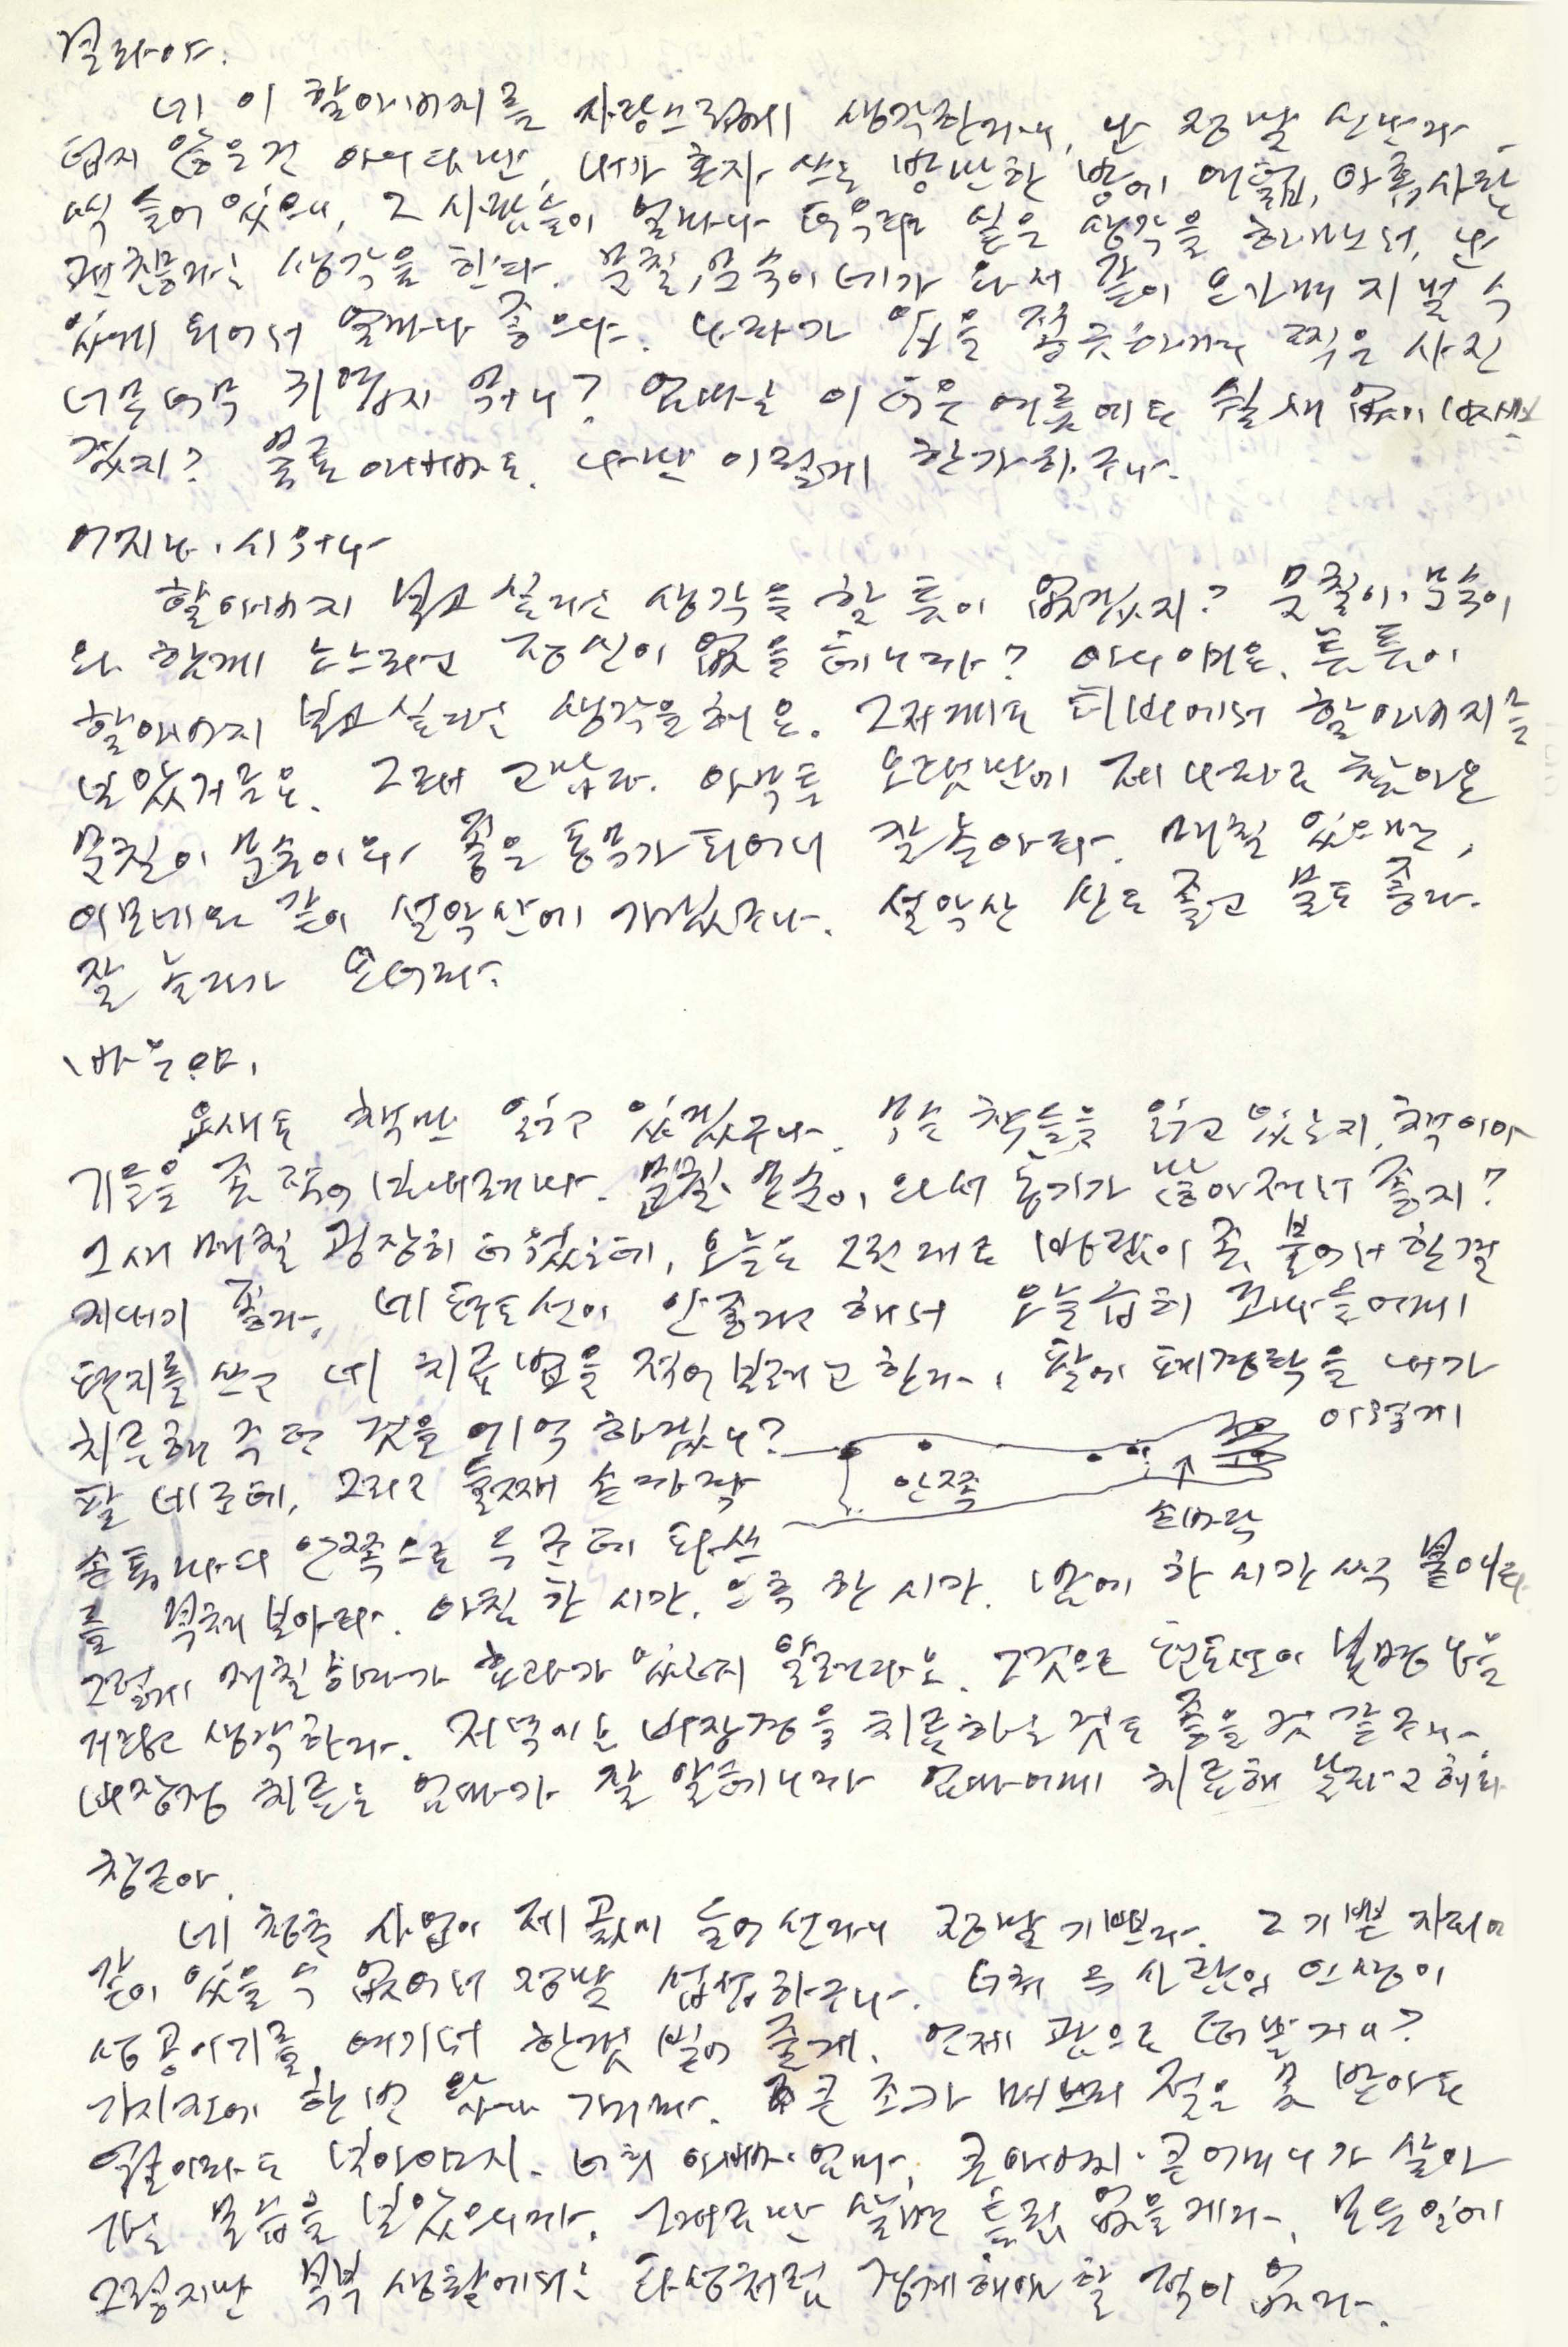 네 이 할아버지를 사랑스럽게 생각한다니, 난 정말 신난다.
덥지 않은건 아니다만, 내가 혼자 쓰는 방만한 방에 여덟, 아홉 사람
씩 들어 있으니, 그 사람들이 얼마나 더우랴 싶은 생각을 하면서, 난
괜찮다는 생각을 한다. 문칠, 문숙이네가 와서 같이 오가며 지낼 수
있게 되어서 얼마나 좋으냐. 나라가 입을 쫑긋하며 찍은 사진
너무너무 귀엽지 않니? 엄마는 이 더운 여름에도 쉴새 없이 바쁘시
겠지? 물론 아빠도. 나만 이렇게 한가하구나.
할아버지 보고 싶다는 생각을 할 틈이 없겠지? 문칠이·문숙이
와 함께 노느라고 정신이 없을 테니까? 아니에요. 틈틈이
할아버지 보고 싶다는 생각을 해요. 그저께도 티비에서 할아버지를
보았거든요. 그래 고맙다. 아무튼 오랫만에 제 나라로 찾아온
문칠이 문숙이와 좋은 동무가 되어서 잘 놀아라. 며칠 있으면,
이모네와 같이 설악산에 가겠구나. 설악산 산도 좋고 물도 좋다.
잘 놀다가 오너라.
바우야.
요새도 책만 읽고 있겠구나. 무슨 책들을 읽고 있는지, 책이야
기들을 좀 적어 보내려무나. 문칠, 문숙이 와서 동기가 많아져서 좋지?
그새 며칠 굉장히 더웠는데, 오늘은 그런대로 바람이 좀 불어서 한결
지내기 좋다. 네 편도선이 안 좋다고 해서 오늘 급히 조카들에게
편지를 쓰고 네 치료법을 적어 보려고 한다. 팔에 폐경락을 내가
치료해 주던 것을 기억하겠니? 이렇게
팔 네 군데, 그리고 둘째 손가락
안쪽
손바닥
손톱 안쪽으로 두 군데 파스
를 붙여 보아라. 아침 한 시간, 오후 한 시간, 밤에 한 시간씩 붙여라.
그렇게 며칠 하다가 효과가 있는지 알려다오. 그것으로 편도선이 분명 나을
거라고 생각한다. 저녁에는 비장경을 치료하는 것도 좋을 것 같구나.
비장경 치료는 엄마가 잘 알테니까 엄마에게 치료해 달라고 해라
창근아.
네 청춘사업이 제 곬에 들어선다니 정말 기쁘다. 그 기쁜 자리에
같이 있을 수 없어서 정말 섭섭하구나. 너희 두 사람의 인생이
성공이기를 여기서 한껏 빌어 줄게. 언제 괌으로 떠날거니?
가기 전에 한번 왔다 가려마. 큰 조카 며느리 절은 못 받아도
얼굴이라도 보아야지. 너희 아빠·엄마, 큰아버지·큰어머니가 살아
가는 모습을 보았으니까, 그대로만 살면 틀림 없을게다. 모든 일에
그렇지만 부부 생활에서는 타성처럼 경계해야 할 적이 없다.